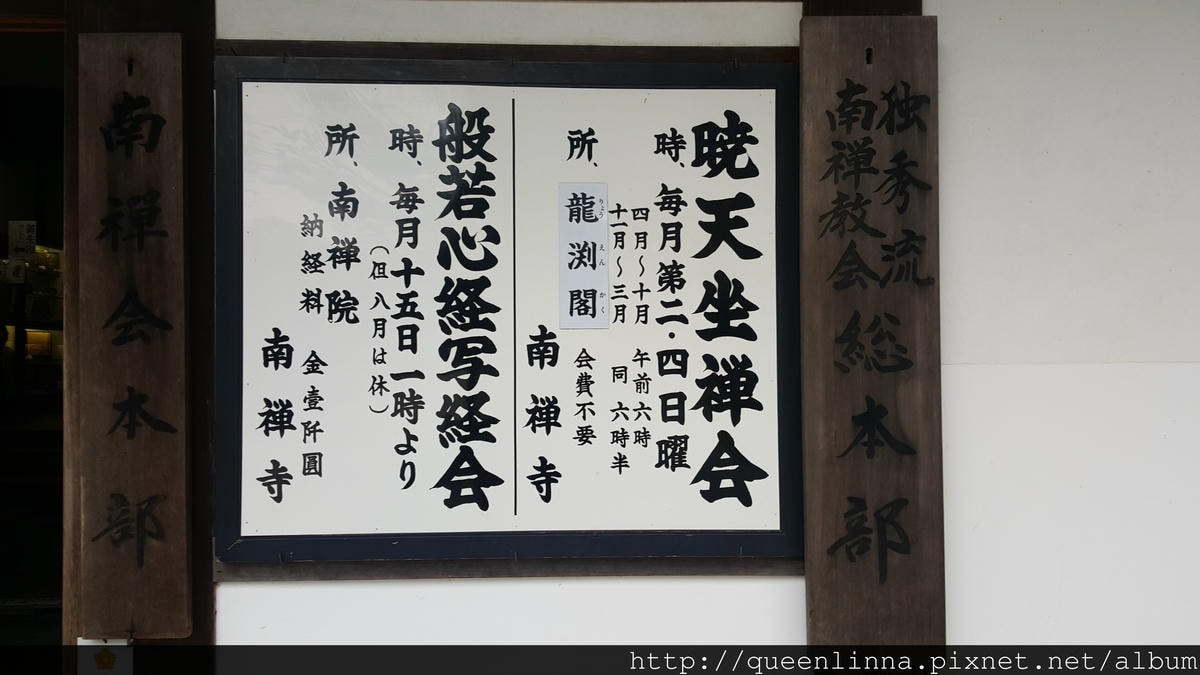 独秀流
南禅教会総本部
暁天坐禅会
時、毎月第二・四日曜
四月〜十月 午前六時
十一月〜三月 同 六時半
所、龍渕閣 会費不要
りょうえんかく
南禅寺
般若心経写経会
時、毎月十五日一時より
(但八月は休)
所、南禅院
納経料 金壹阡圓
南禅寺
南禅会本部
http://queenlinna.pixnet.net/album